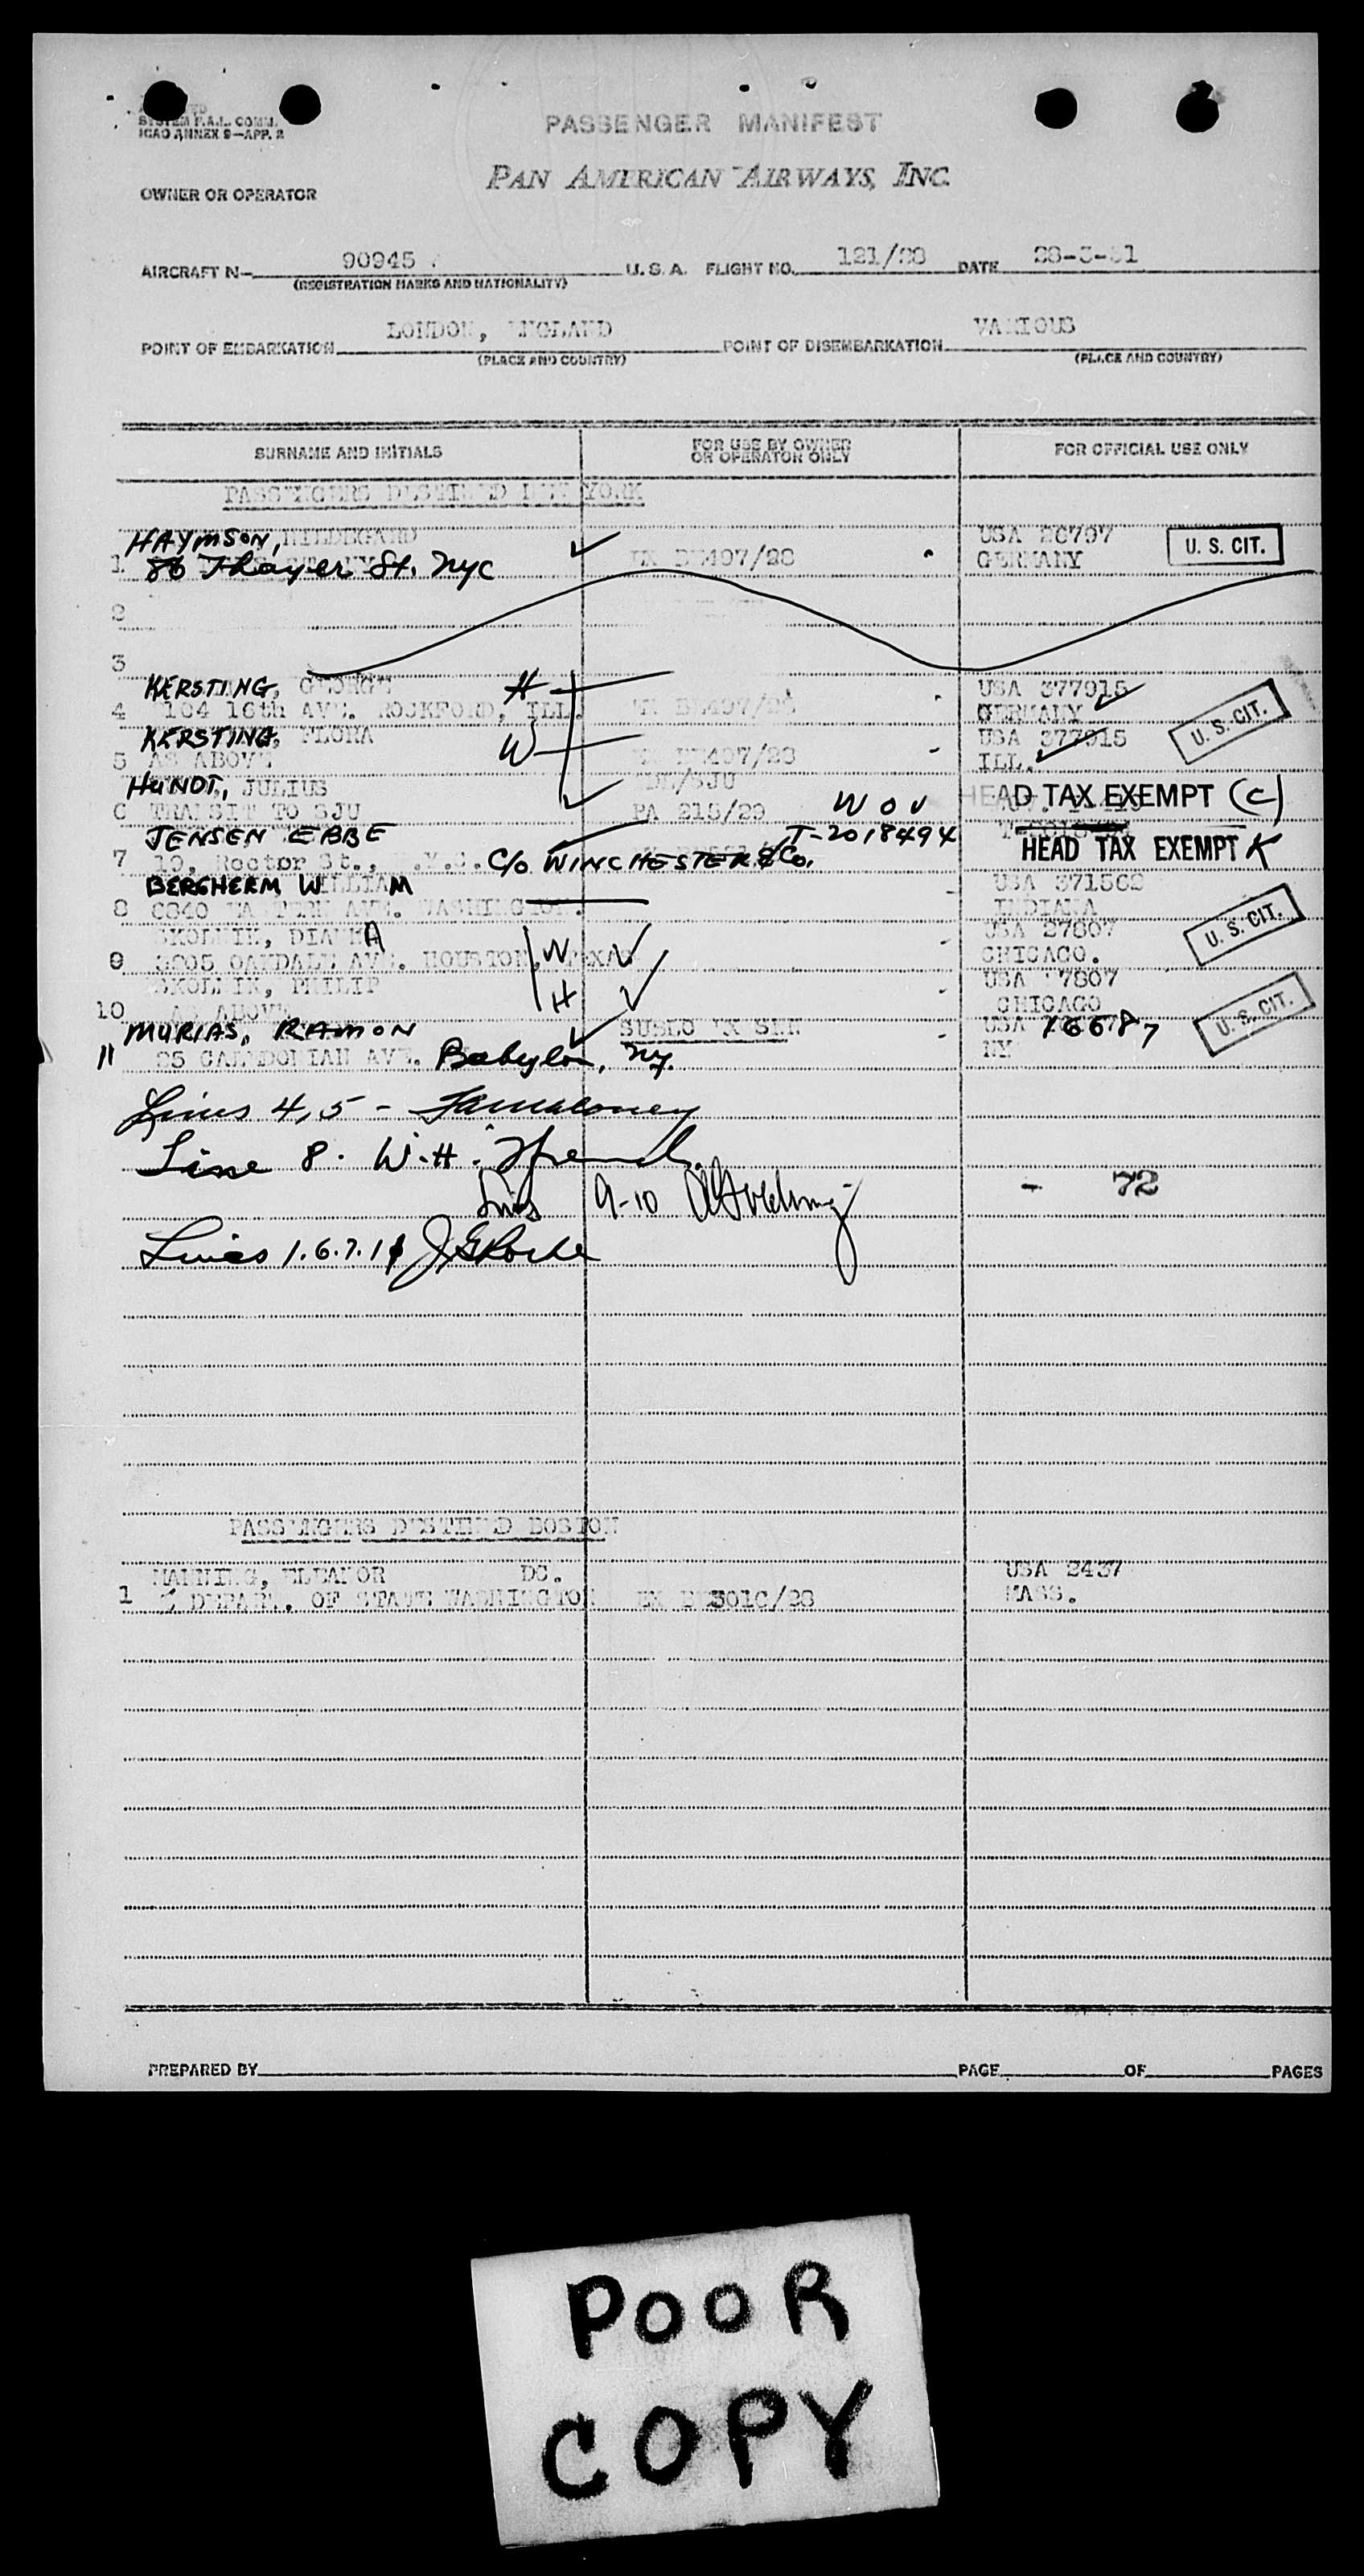 SYSTEM P.A.I. COMM.
ICAO ANNEX 9—APP. 2
PASSENGER MANIFEST
PAN AMERICAN AIRWAYS, INC.
OWNER OR OPERATOR
AIRCRAFT N— 90945 U. S. A. FLIGHT NO. 121/28 DATE 28-3-51
(REGISTRATION MARKS AND NATIONALITY)
POINT OF EMBARKATION LONDON, ENGLAND POINT OF DISEMBARKATION VARIOUS
(PLACE AND COUNTRY) (PLACE AND COUNTRY)
SURNAME AND INITIALS FOR USE BY OWNER OR OPERATOR ONLY FOR OFFICIAL USE ONLY
PASSENGERS DESTINED NEW YORK
HAYMSON, HILDEGARD USA 26797 U. S. CIT.
1 86 Thayer St. Nyc 497/28 GERMANY
2
3
KERSTING, GEORGE H USA 377915
4 104 16th AVE. ROCKFORD, ILL. 497/28 GERMANY U. S. CIT.
KERSTING, FLORA W USA 377915
5 AS ABOVE 497/28 ILL.
HUNDT, JULIUS /SJU HEAD TAX EXEMPT (C)
6 TRANSIT TO SJU PA 215/29 W O V
JENSEN EBBE T-2018494
7 19, Rector St., N.Y.C. C/O WINCHESTER & Co. HEAD TAX EXEMPT K
BERGHERM WILLIAM USA 371562
8 6840 EASTERN AVE. WASHINGTON. INDIANA
SKOLNIK, DIANNA W USA 27807 U. S. CIT.
9 OAKDALE AVE. HOUSTON, TEXAS CHICAGO.
SKOLNIK, PHILIP H USA 7807
10 AS ABOVE CHICAGO
MURIAS, RAMON USA 16687 U. S. CIT.
11 25 CALEDONIAN AVE. Babylon, Ny. NY
Lines 4,5 -
Line 8. W.H. French
Lines 9-10 - 72
Lines 1.6.7.11
PASSENGERS DESTINED BOSTON
MANNING, ELEANOR DS. USA 2437
1 % DEPART. OF STATE WASHINGTON 301C/28 MASS.
PREPARED BY PAGE OF PAGES
POOR
COPY